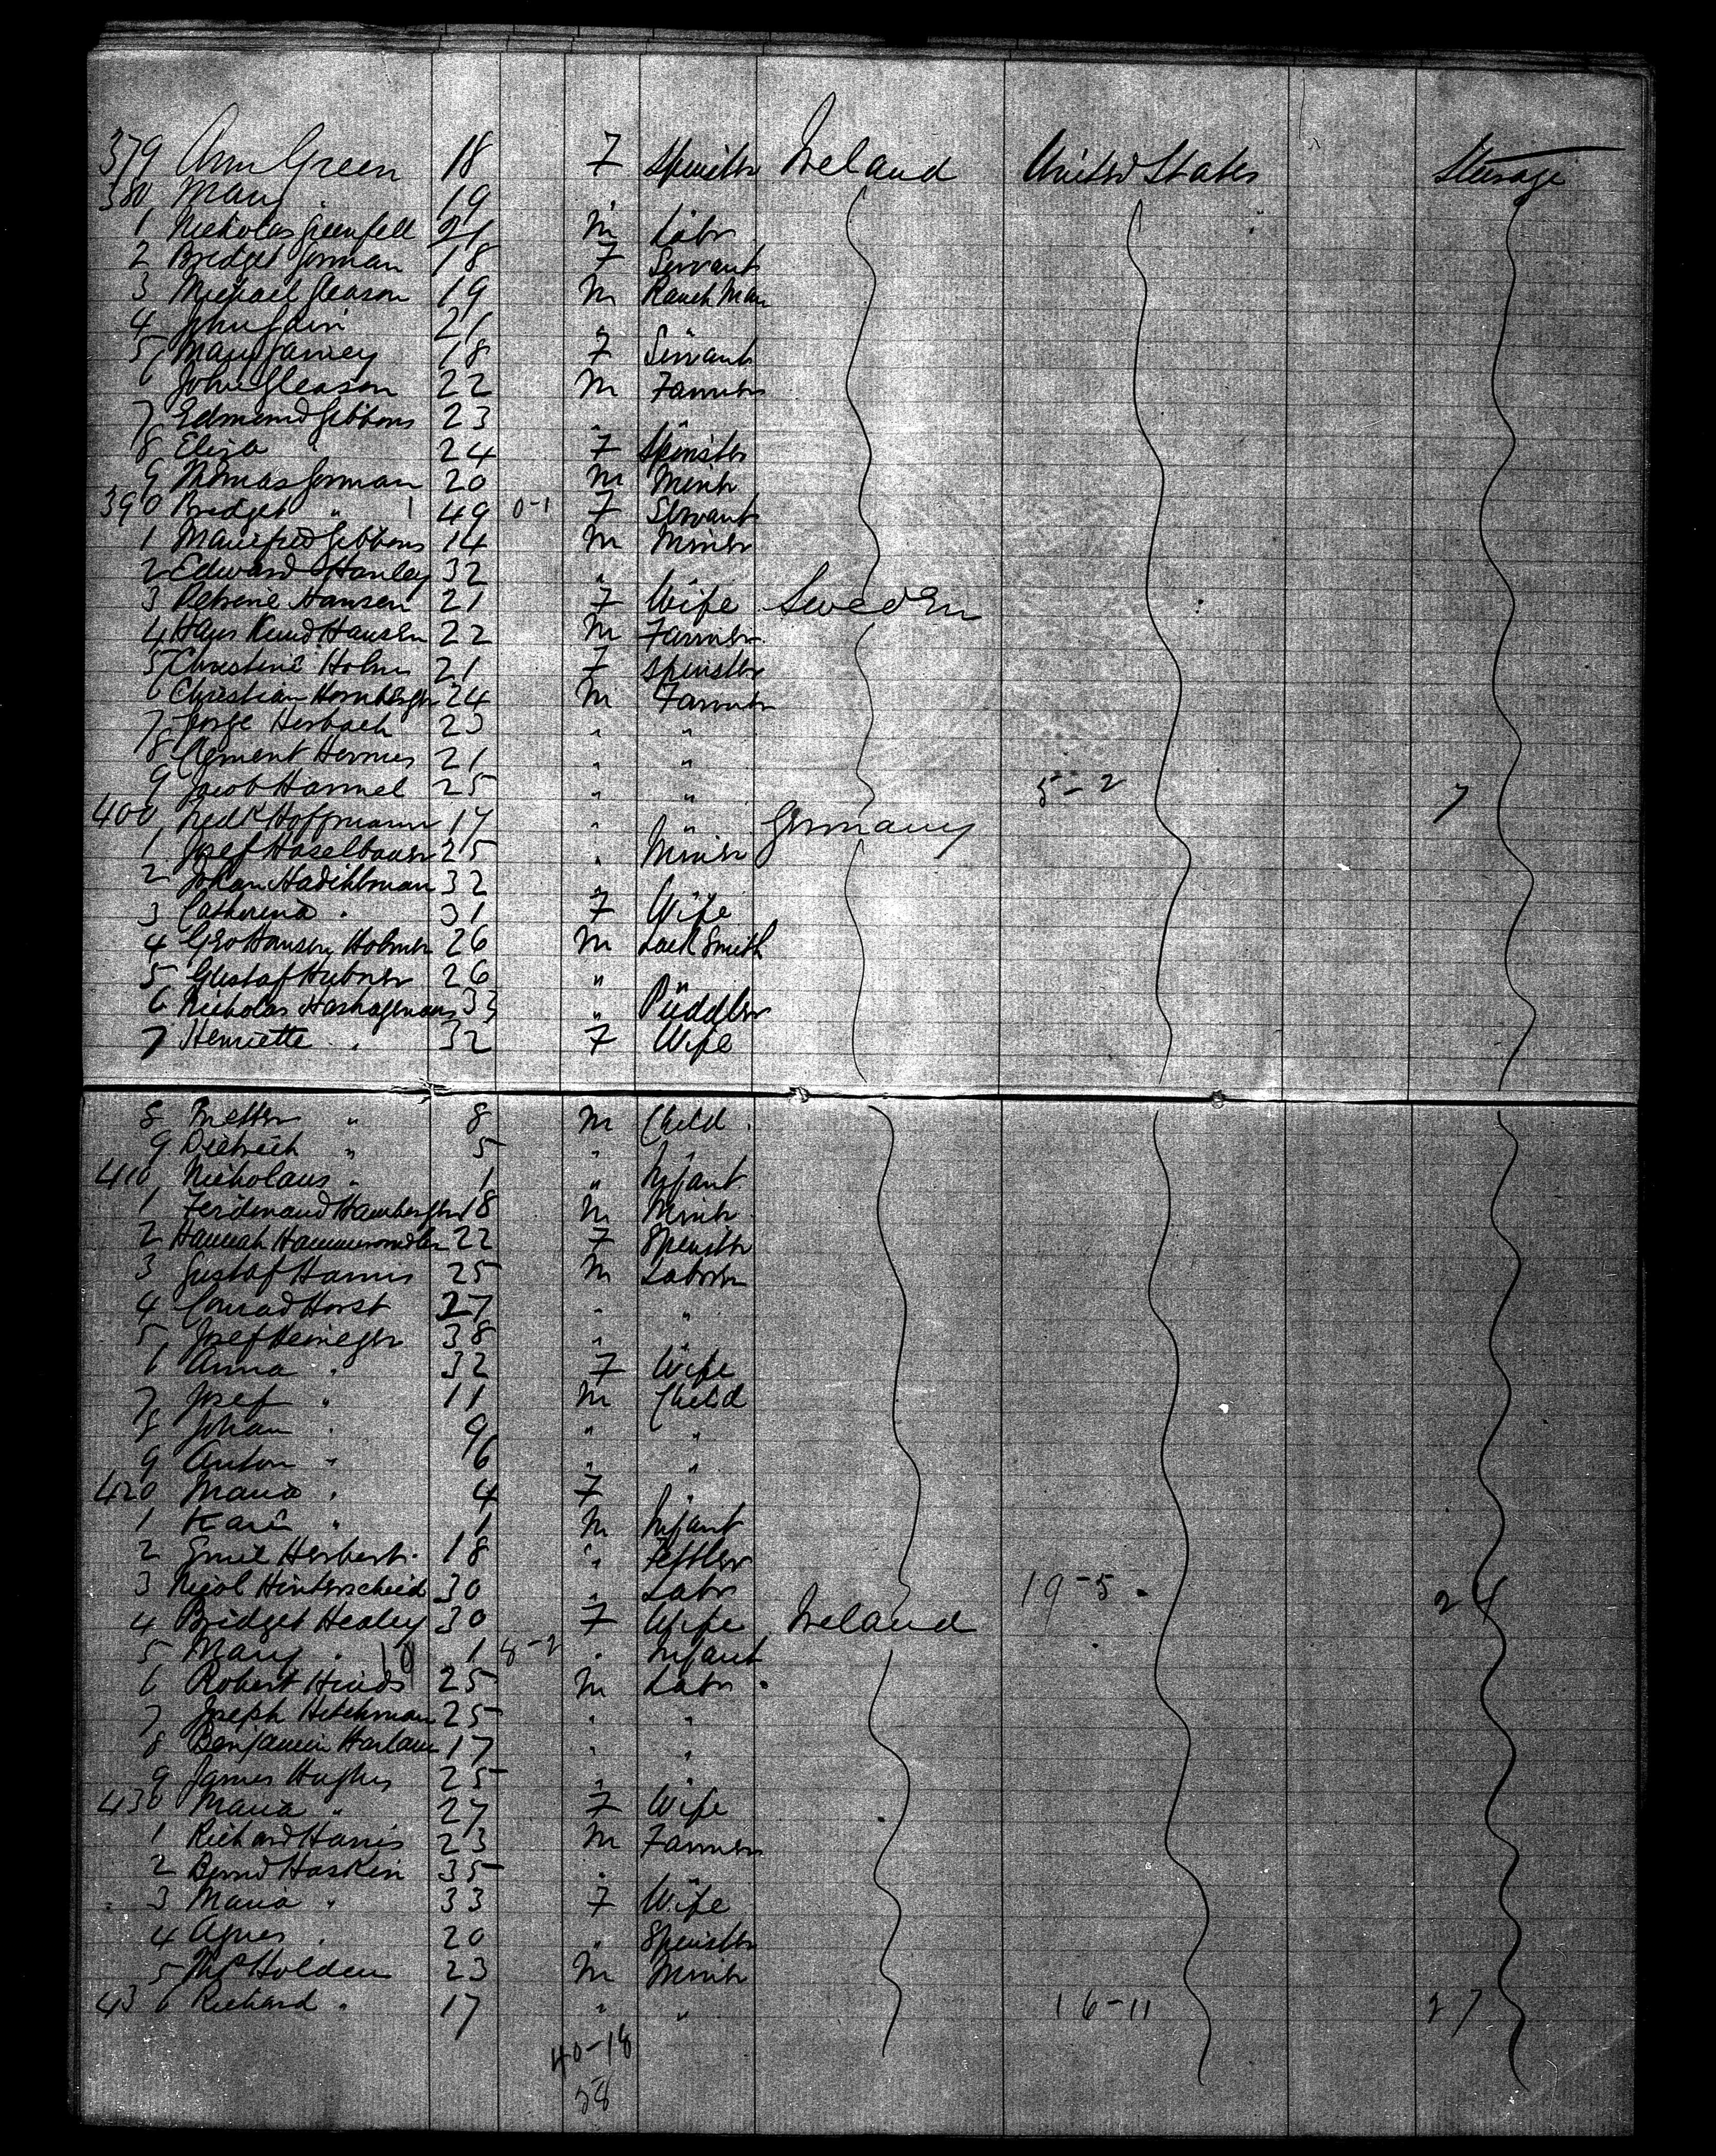 379 Ann Green 18 F Spinster Ireland United States Steerage
380 Mary " 19
1 Nicholas Greenfell 21 M Labr
2 Bridget Gorman 18 F Servant
3 Michael Gleason 19 M Ranch Man
4 John 21 "
5 Mary 18 F Servant
6 John Gleason 22 M Farmer
7 Edmund Gibbons 23 "
8 Eliza " 24 F Spinster
9 Thomas Gorman 20 M Miner
390 Bridget " 1 49 0-1 F Servant
1 Gibbons 14 M Miner
2 Edward Hanley 32 "
3 Hansen 21 F Wife Sweden
4 Hans Knud Hansen 22 M Farmer
5 Christine Holm 21 F Spinster
6 Christian Hornberger 24 M Farmer
7 Herbach 23 " "
8 Clement Hermes 21 " "
9 Jacob Hammel 25 " " 5-2 7
400 Fredk Hoffmann 17 " " Germany
1 Josef Haselbauer 25 " Miner
2 Johan 32 "
3 Catherina " 31 F Wife
4 Geo Hansen Holmer 26 M Lock Smith
5 Gustaf Hubner 26 "
6 Nicholas 33 " Püddler
7 Henriette " 32 F Wife
8 " 8 M Child
9 Dietrich " 5 " "
410 Nicholaus " 1 " Infant
1 Ferdinand Hamberger 18 M Miner
2 Hannah 22 F Spinster
3 Gustaf Harris 25 M Laborer
4 Conrad Horst 27 " "
5 Josef Heineger 38 " "
6 Anna " 32 F Wife
7 Josef " 11 M Child
8 Johan " 9 " "
9 Anton " 6 " "
420 Maria " 4 F "
1 Karl " 1 M Infant
2 Emil Herbert 18 "
3 Nicol Hinterscheid 30 " Labr 19-5 24
4 Bridget Healey 30 F Wife Ireland
5 Mary " 18 1 8-2 " Infant
6 Robert Hinds 25 M Labr
7 Joseph Hitchman 25 " "
8 Benjamin Harlam 17 " "
9 James Hughes 25 " "
430 Maria " 27 F Wife
1 Richard Harris 23 M Farmer
2 Bernd Haskin 35 "
3 Maria " 33 F Wife
4 Agnes " 20 " Spinster
5 Holden 23 M Miner
436 Richard " 17 " " 16-11 27
40-18
58